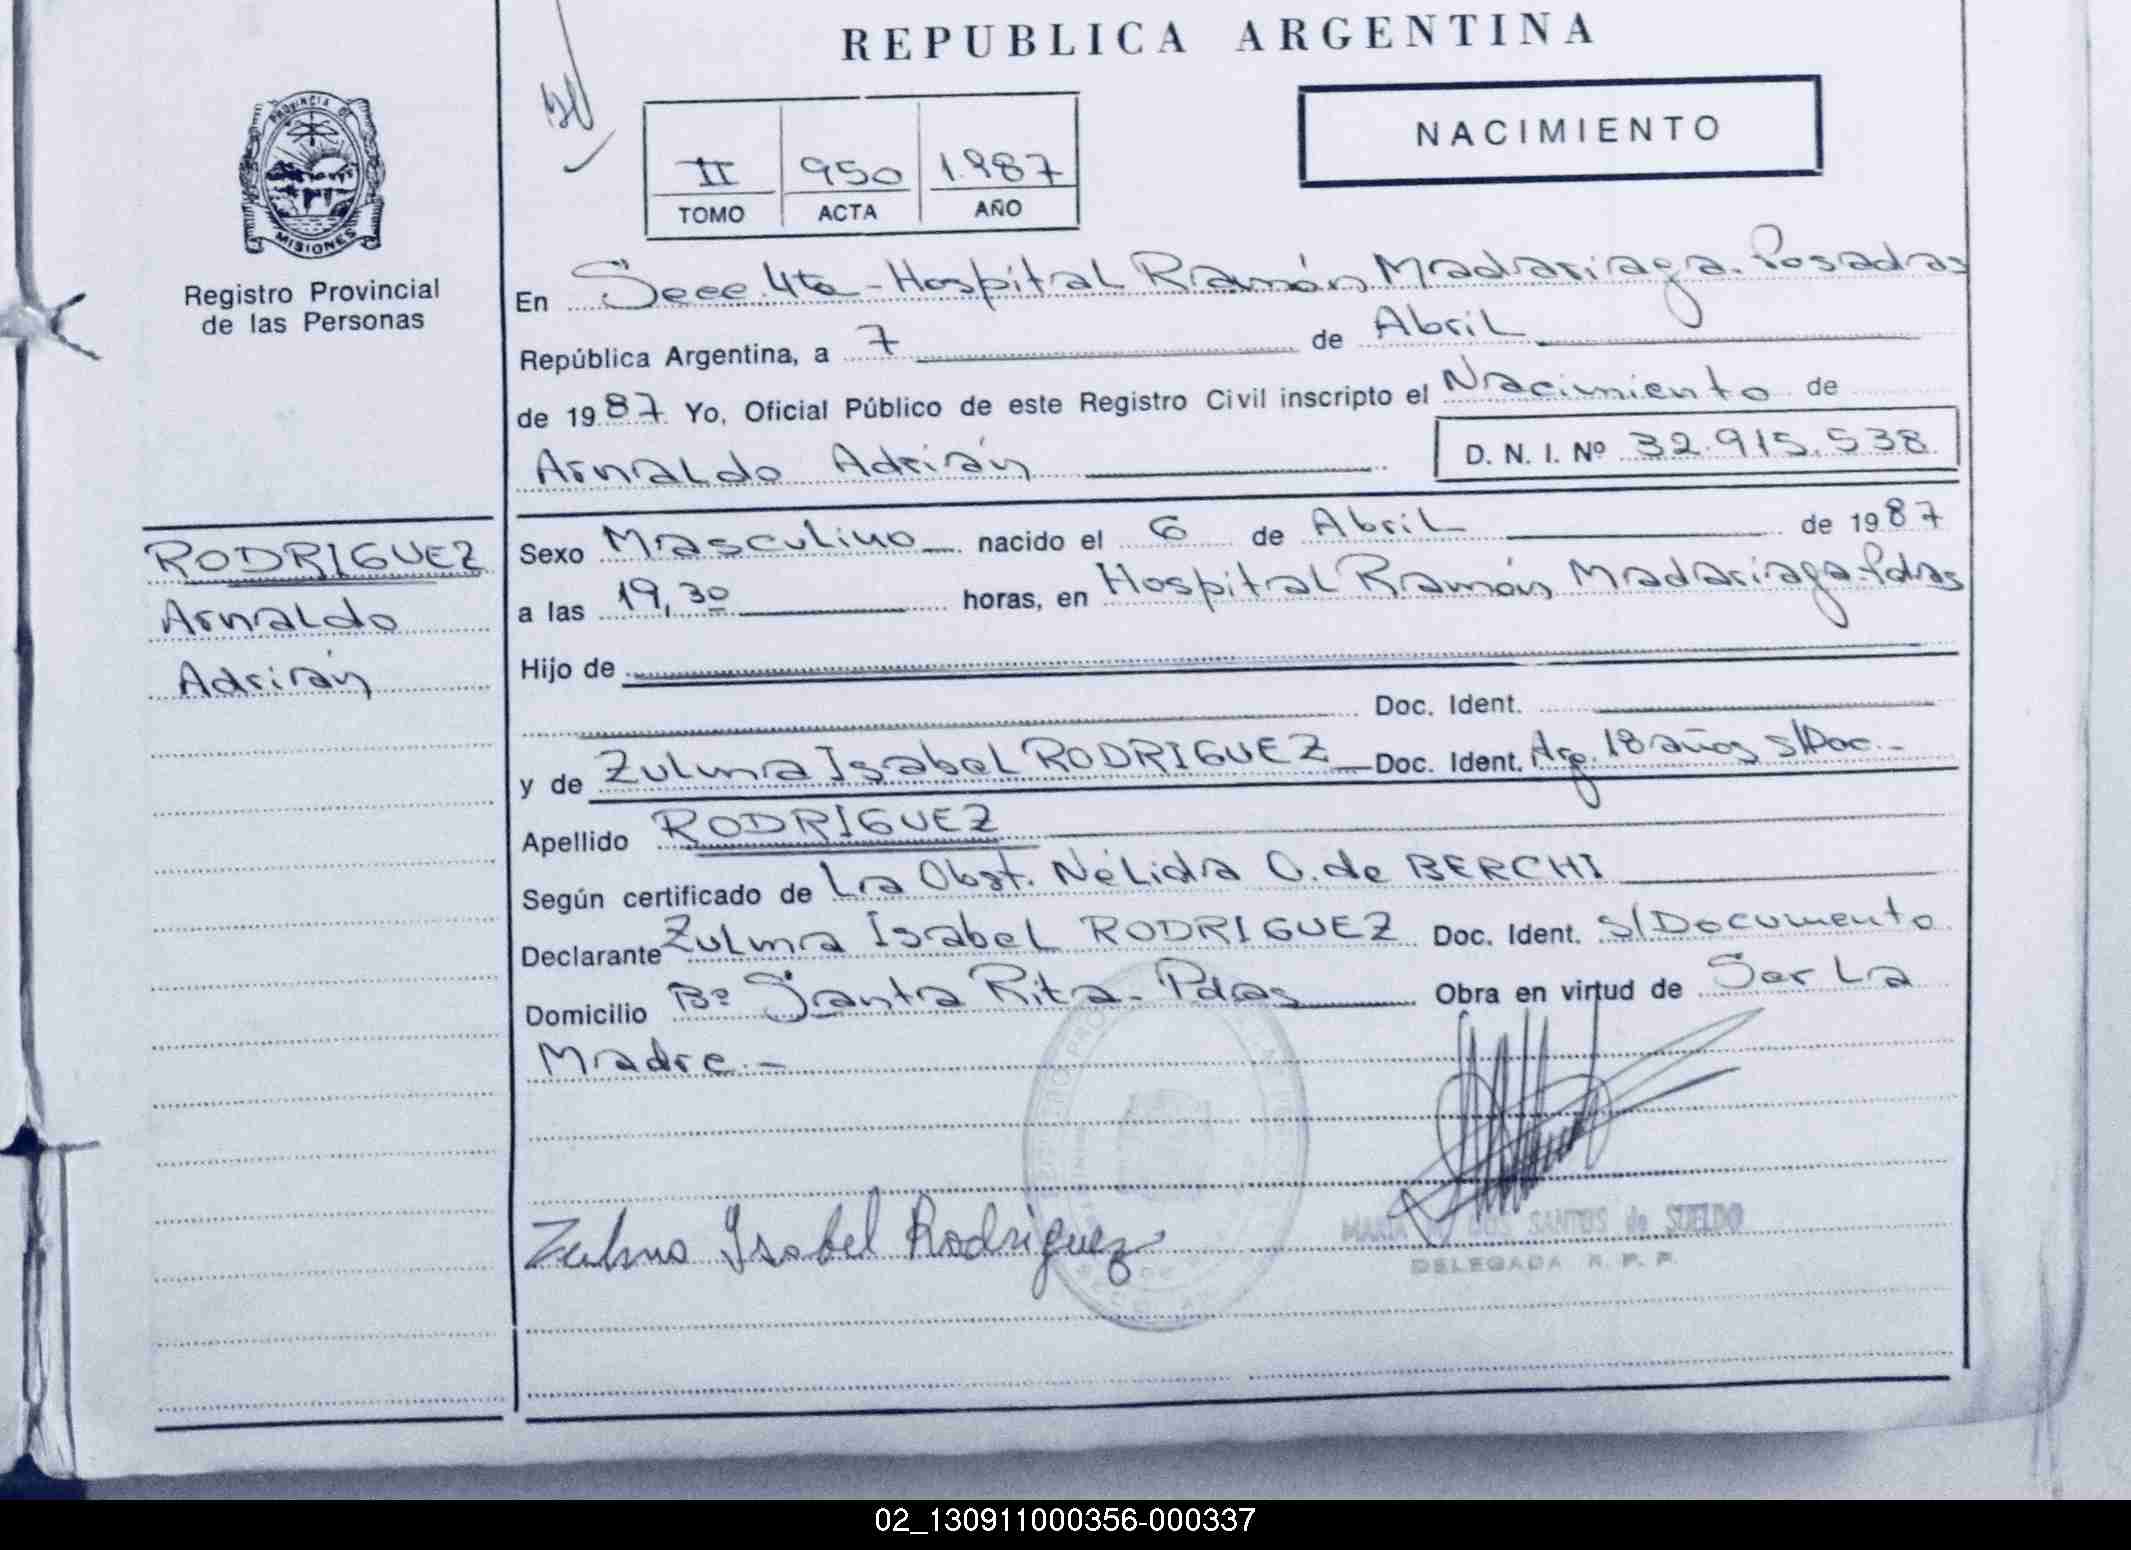 REPUBLICA ARGENTINA
NACIMIENTO
II 950 1.987
TOMO ACTA AÑO
PROVINCIA DE
MISIONES
Registro Provincial
de las Personas
RODRIGUEZ
Arnaldo
Adrián
En Secc. 4ta - Hospital Ramón Madariaga. Posadas
República Argentina, a 7 de Abril
de 1987 Yo, Oficial Público de este Registro Civil inscripto el Nacimiento de
Arnaldo Adrián D. N. I. Nº 32.915.538
Sexo Masculino nacido el 6 de Abril de 1987
a las 19,30 horas, en Hospital Ramón Madariaga-Pdas
Hijo de
Doc. Ident.
y de Zulma Isabel RODRIGUEZ Doc. Ident. Arg. 18 años s/Doc.-
Apellido RODRIGUEZ
Según certificado de La Obst. Nélida O. de BERCHI
Declarante Zulma Isabel RODRIGUEZ Doc. Ident. S/Documento
Domicilio Bº Santa Rita - Pdas Obra en virtud de Ser La
Madre.-
Zulma Isabel Rodriguez
MARIA DOS SANTOS de SUELDO
DELEGADA R. P. P.
02_130911000356-000337